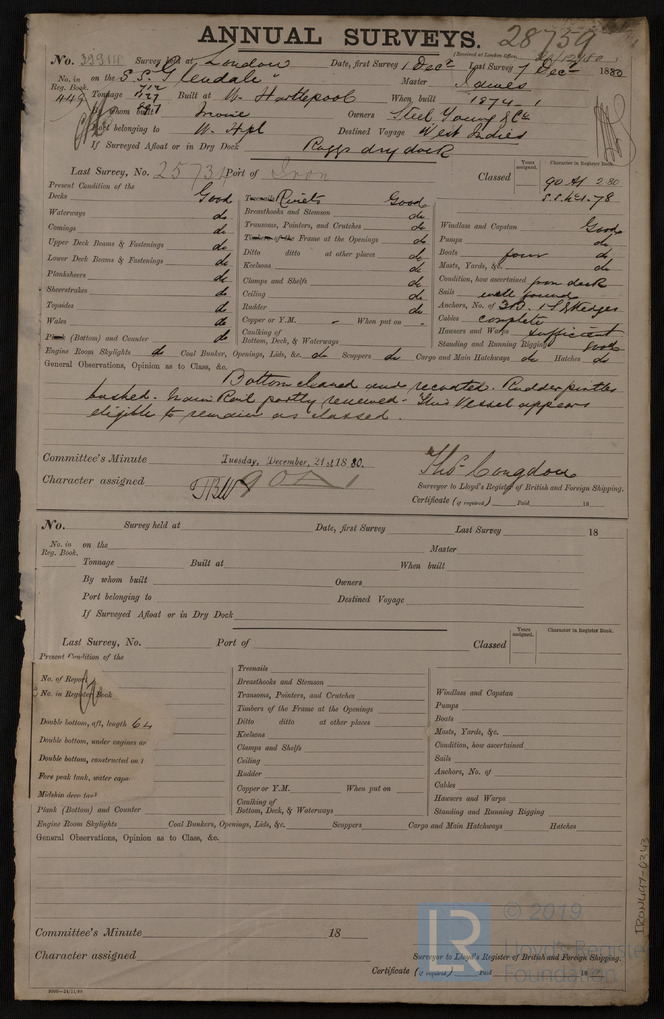 ANNUAL SURVEYS. 28759
(Received at London Office,
No. Survey held at London Date, first Survey 1 Decr Last Survey 7 Decr 1880
No. in Reg. Book. on the S.S. "Glendale" Master James
449 Tonnage 712 1127 897 Built at W. Hartlepool When built 1874-1
By whom built Irvine Owners Steel Young & Co
Port belonging to W. Hpl Destined Voyage West Indies
If Surveyed Afloat or in Dry Dock dry dock
Last Survey, No. 25731 Port of Iron Classed Years assigned. Character in Register Book.
90 A1 2.80
S.S. No 1-78
Present Condition of the
Decks Good Rivets Good
Waterways do Breasthooks and Stemson do
Comings do Transoms, Pointers, and Crutches do Windlass and Capstan Good
Upper Deck Beams & Fastenings do Frame at the Openings do Pumps do
Lower Deck Beams & Fastenings do Ditto ditto at other places do Boats four do
Planksheers do Keelsons do Masts, Yards, &c. do
Sheerstrakes do Clamps and Shelfs do Condition, how ascertained from deck
Topsides do Ceiling do Sails well found
Wales do Rudder do Anchors, No. of 3 B. 1 S. 2 Kedges
(Bottom) and Counter do Copper or Y.M. " When put on " Cables complete
Caulking of Bottom, Deck, & Waterways Hawsers and Warps sufficient
Standing and Running Rigging good
Engine Room Skylights do Coal Bunker, Openings, Lids, &c. do Scuppers do Cargo and Main Hatchways do Hatches do
General Observations, Opinion as to Class, &c.
Bottom cleaned and recoated. Rudder pintles
bushed. Main Rail partly renewed - This Vessel appears
eligible to remain as classed.
Committee's Minute Tuesday, December, 21st 1880.
Character assigned 90 A 1
Thos Congdon
Surveyor to Lloyd's Register of British and Foreign Shipping.
Certificate (if required) Paid 18
No. Survey held at Date, first Survey Last Survey 18
No. in Reg. Book. on the Master
Tonnage Built at When built
By whom built Owners
Port belonging to Destined Voyage
If Surveyed Afloat or in Dry Dock
Last Survey, No. Port of Classed Years assigned. Character in Register Book.
Present Condition of the
No. of Report
No. in Register Book
Double bottom, aft, length 64
Double bottom, under engines
Double bottom, constructed on
Fore peak tank, water
Midship deep tank
Plank (Bottom) and Counter
Treenails
Breasthooks and Stemson
Transoms, Pointers, and Crutches
Timbers of the Frame at the Openings
Ditto ditto at other places
Keelsons
Clamps and Shelfs
Ceiling
Rudder
Copper or Y.M. When put on
Caulking of
Bottom, Deck, & Waterways
Windlass and Capstan
Pumps
Boats
Masts, Yards, &c.
Condition, how ascertained
Sails
Anchors, No. of
Cables
Hawsers and Warps
Standing and Running Rigging
Engine Room Skylights Coal Bunkers, Openings, Lids, &c. Scuppers Cargo and Main Hatchways Hatches
General Observations, Opinion as to Class, &c.
Committee's Minute 18
Character assigned
Surveyor to Lloyd's Register of British and Foreign Shipping.
Certificate (if required) Paid 18
IRON697-0343
LR © 2019
Lloyd's Register
Foundation